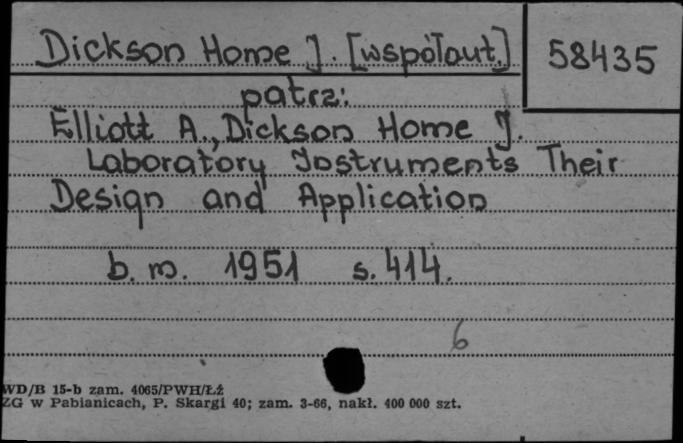 Dickson Home J. [współaut.] 58435
patrz:
Elliott A., Dickson Home J.
Laboratory Instruments Their
Design and Application
b. m. 1951 s. 414.
6
WD/B 15-b zam. 4065/PWH/Łź
ZG w Pabianicach, P. Skargi 40; zam. 3-66, nakł. 400 000 szt.